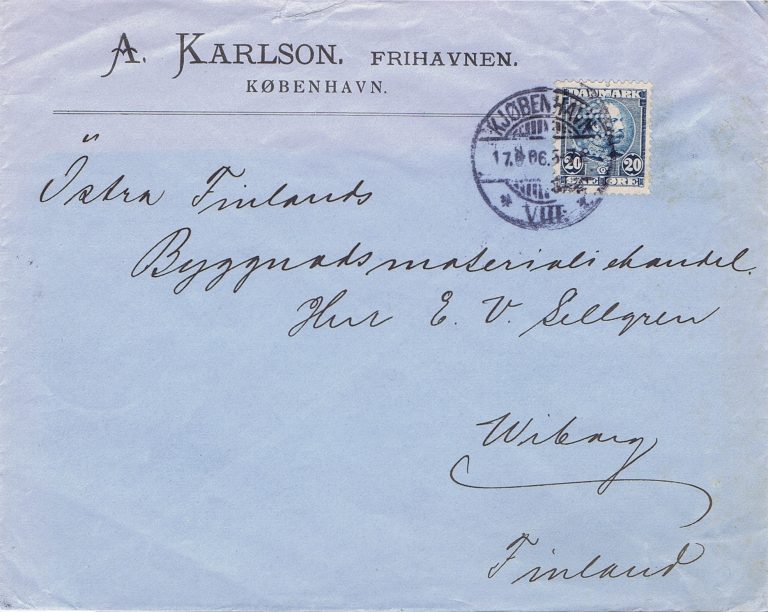 A. KARLSON. FRIHAVNEN.
KØBENHAVN.
DANMARK
20 20
ØRE
KJØBENHAVN
VIII.
Östra Finlands
Byggnadsmaterialiehandel.
Herr E. V. Sellgren
Wiborg
Finland